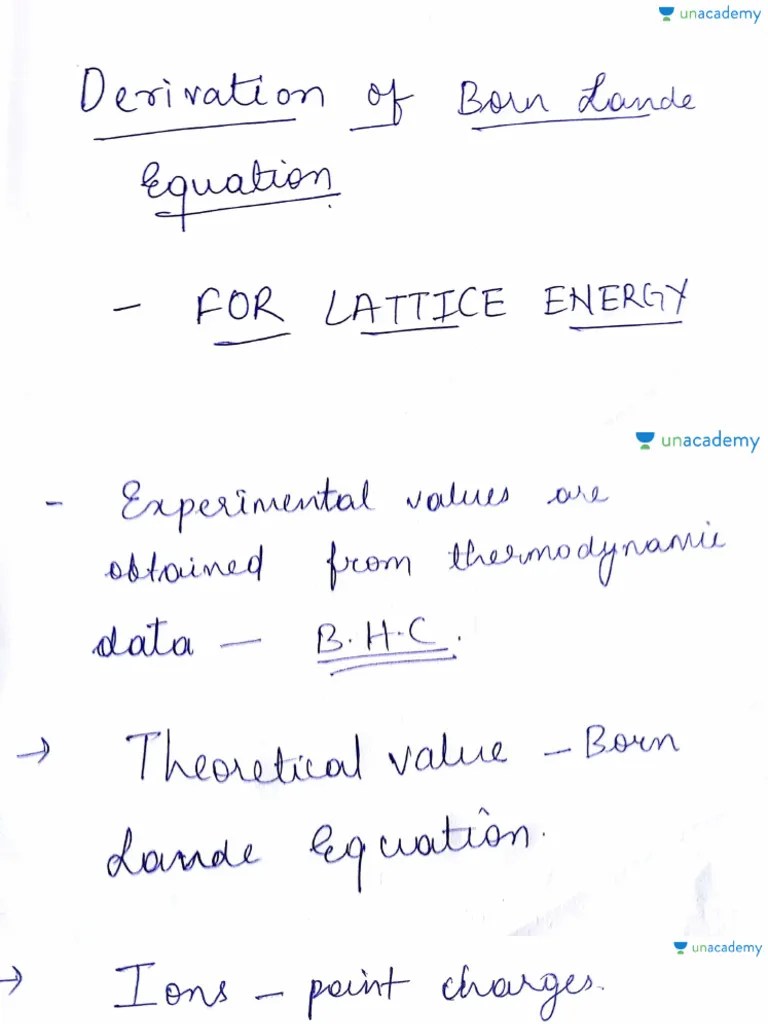 unacademy
Derivation of Born Lande
Equation
- FOR LATTICE ENERGY
unacademy
- Experimental values are
obtained from thermodynamic
data - B.H.C.
→ Theoretical value - Born
Lande Equation.
unacademy
→ Ions - point charges.